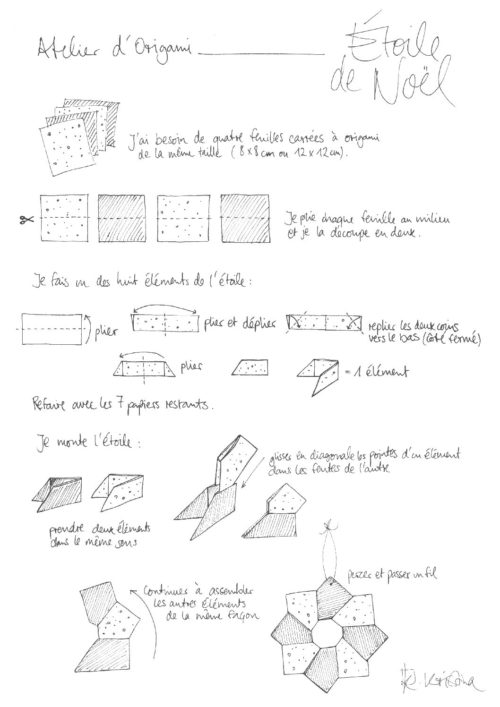 Atelier d'Origami
Étoile
de Noël
J'ai besoin de quatre feuilles carrées à origami
de la même taille (8x8 cm ou 12x12 cm).
Je plie chaque feuille au milieu
et je la découpe en deux.
Je fais un des huit éléments de l'étoile :
plier
plier et déplier
replier les deux coins
vers le bas (côté fermé)
plier
= 1 élément
Refaire avec les 7 papiers restants.
Je monte l'étoile :
glisser en diagonale les pointes d'un élément
dans les fentes de l'autre
prendre deux éléments
dans le même sens
Continuer à assembler
les autres éléments
de la même façon
percer et passer un fil